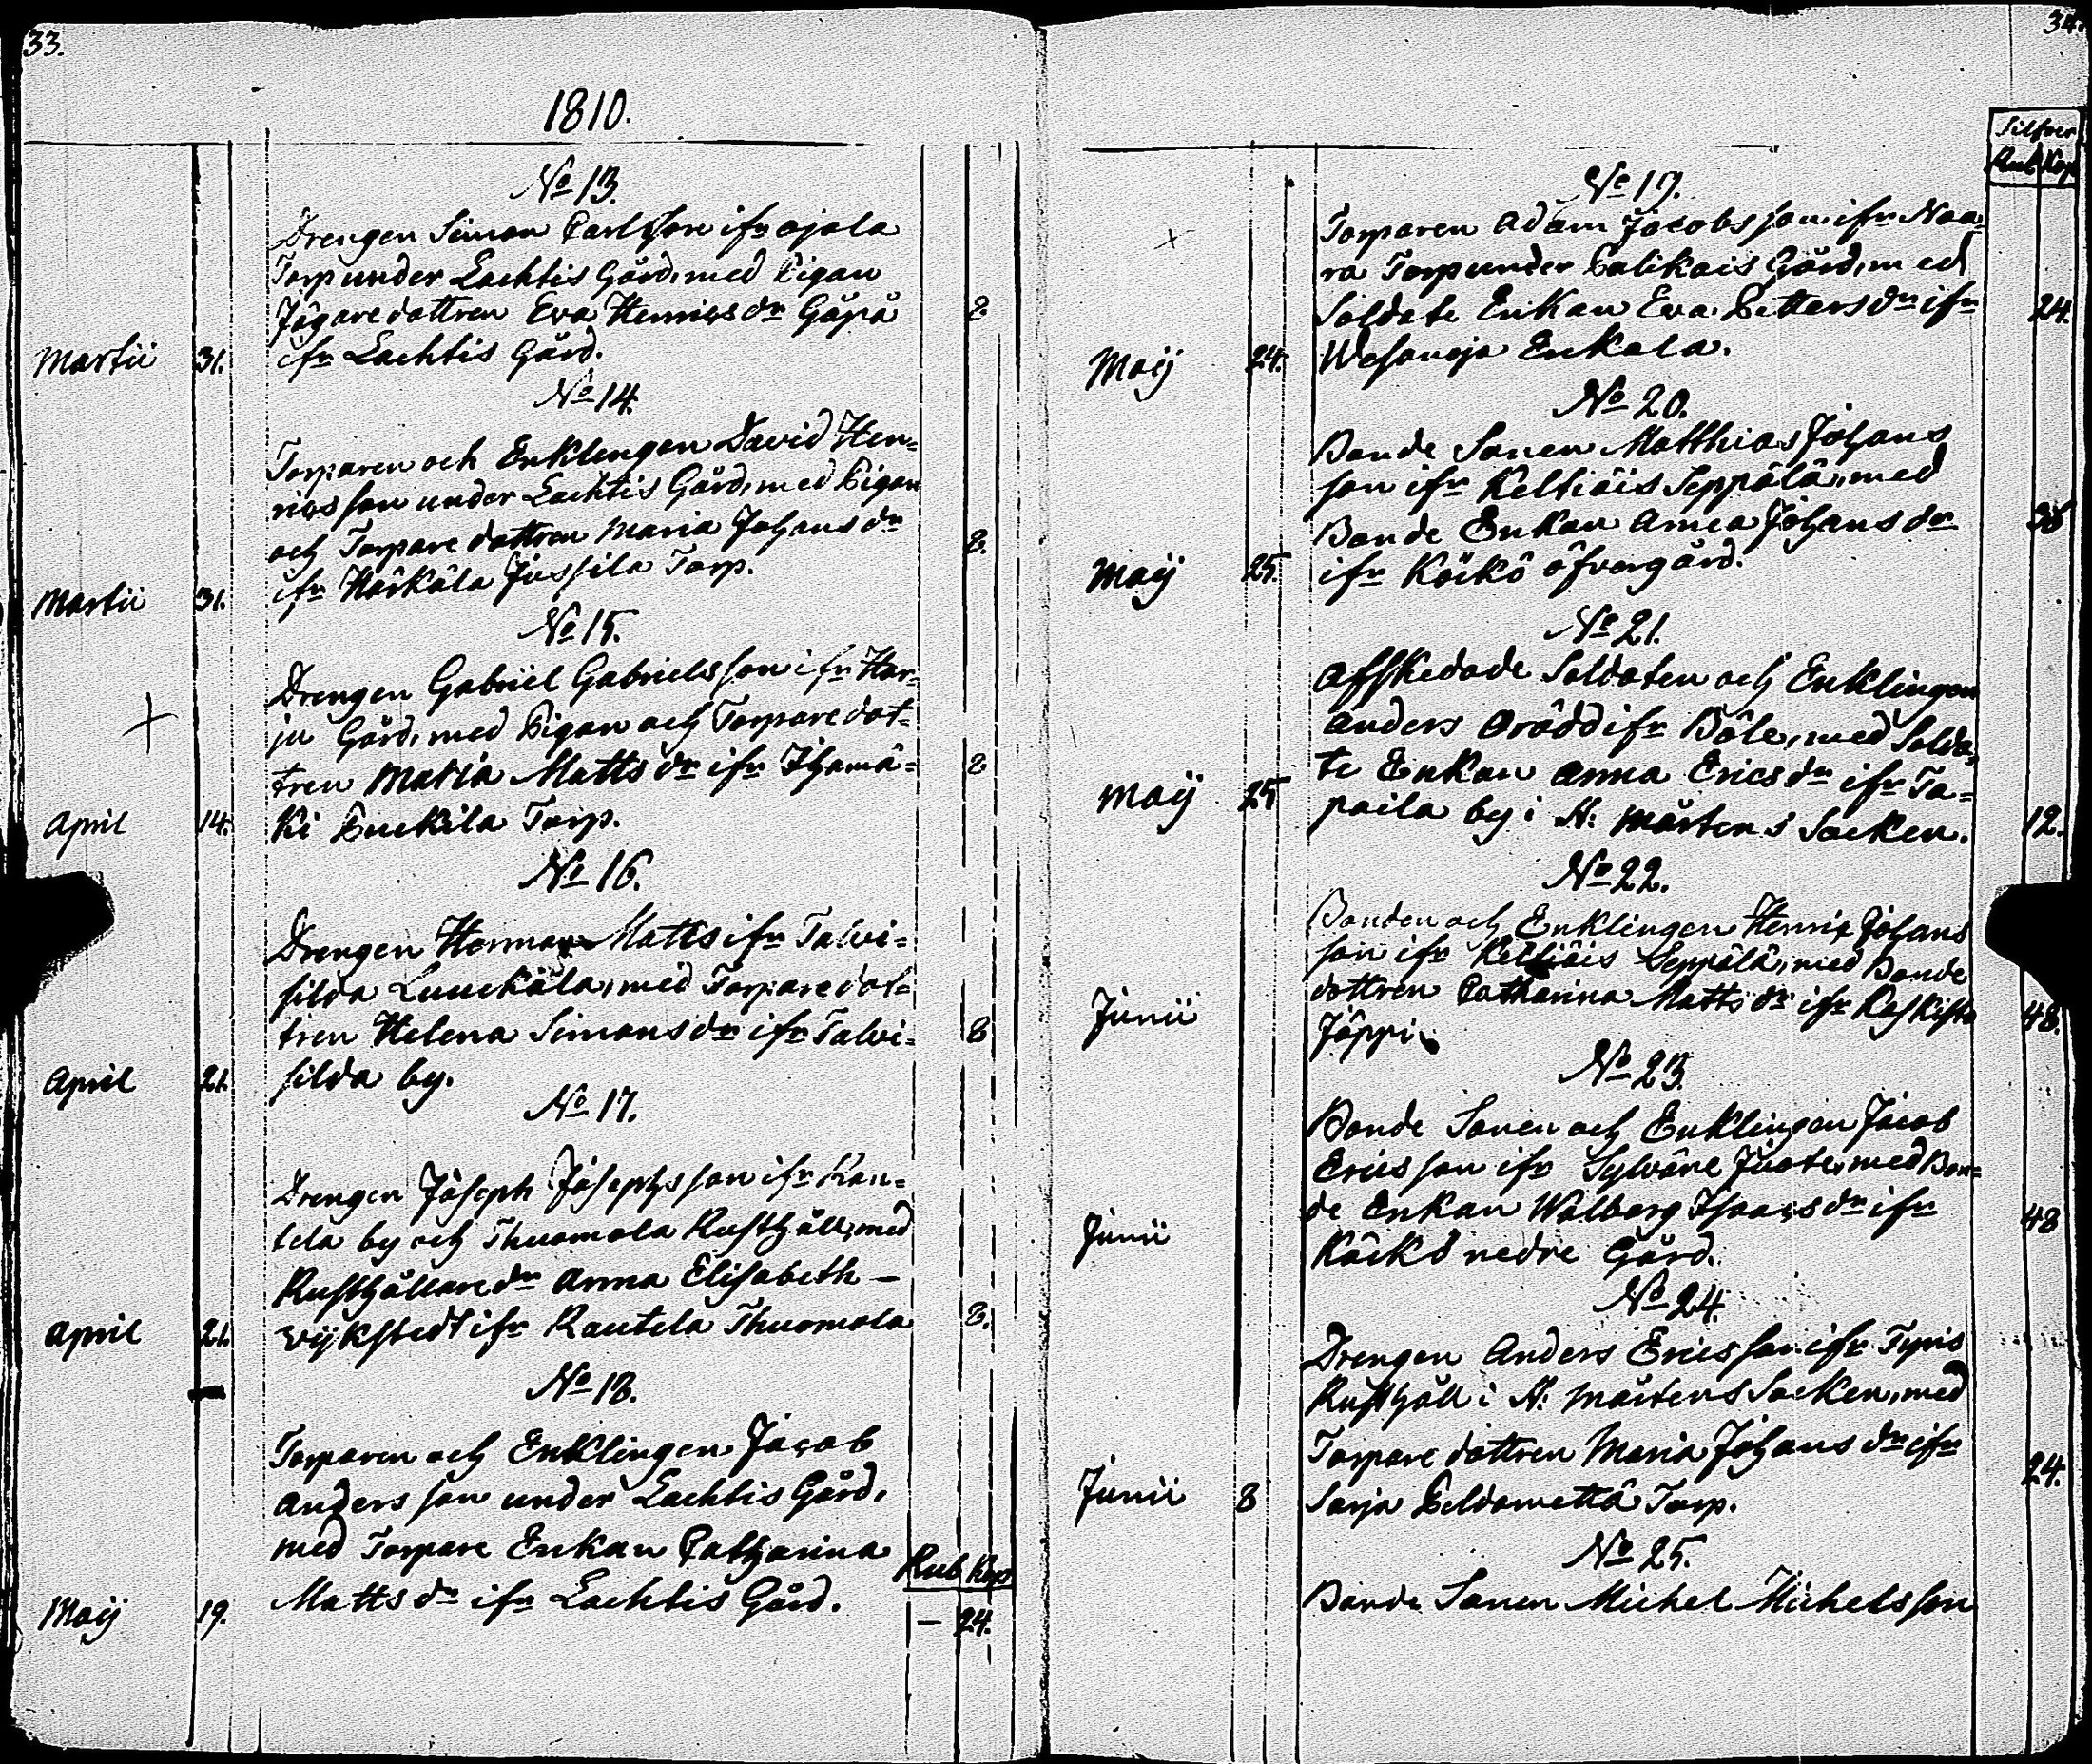 33.
1810.
No 13.
Drengen Simon Carlsson ifn ojala
Torp under Lachtis Gård, med Pigan
Jägaredottren Eva Henricsdr Gåpå
Martii 31. ifn Lachtis Gård. 8.
No 14.
Torparen och Enklingen David Hen=
ricsson under Lachtis Gård, med Pigan
och Torparedottren Maria Johansdr
Martii 31. ifn Härkälä Jussila Torp. 8.
No 15.
Drengen Gabriel Gabrielsson ifn Har=
ju Gård, med Pigan och Torparedot=
tren Maria Mattsdr ifn Ihamä=
April 14. ki Puckila Torp. 8
No 16.
Drengen Herman Matts ifn Talvi=
silda Luuckäla, med Torparedot=
tren Helena Simonsdr ifn Talvi=
April 21. silda by. 8
No 17.
Drengen Joseph Josephsson ifn Kan=
tela by och Thuomola Rusthåll, med
Rusthållaredr Anna Elisabeth —
April 21. Wijkstedt ifn Rautela Thuomola 8.
No 18.
Torparen och Enklingen Jacob
Andersson under Lachtis Gård,
med Torpare Enkan Catharina
Rub Kop
Maij 19. Mattsdr ifn Lachtis Gård. — 24.
34.
Silfver
Rub Kop
No 19.
Torparen Adam Jacobsson ifn Naa=
ra Torp under Palikais Gård, med
Soldate Enkan Eva Pettersdr ifn
Maij 24. Wesanoja Enkala. 24.
No 20.
Bonde Sonen Matthias Johans
son ifn Keltiäis Seppälä, med
Bonde Enkan Anna Johansdr
Maij 25. ifn Köikö öfvergård.
No 21.
Affskedade Soldaten och Enklingen
Anders Orädd ifn Böle, med Solda=
te Enkan Anna Ericsdr ifn Ta=
Maij 25 paila by i St: Mårtens Socken. 12.
No 22.
Bonden och Enklingen Henric Johans
son ifn Keltiäis Seppälä, med Bonde
dottren Catharina Mattsdr ifn Kaskisto
Junii Jöppi. 48.
No 23.
Bonde Sonen och Enklingen Jacob
Ericsson ifn Sylväne Juote, med Bon=
de Enkan Walborg Isaacsdr ifn
Junii Köikö nedre Gård. 48
No 24.
Drengen Anders Ericsson ifn Tyris
Rusthåll i St: Mårtens Socken, med
Torpare dottren Maria Johansdr ifn
Junii 8 Sarja Peldometsä Torp. 24.
No 25.
Bonde Sonen Michel Michelsson